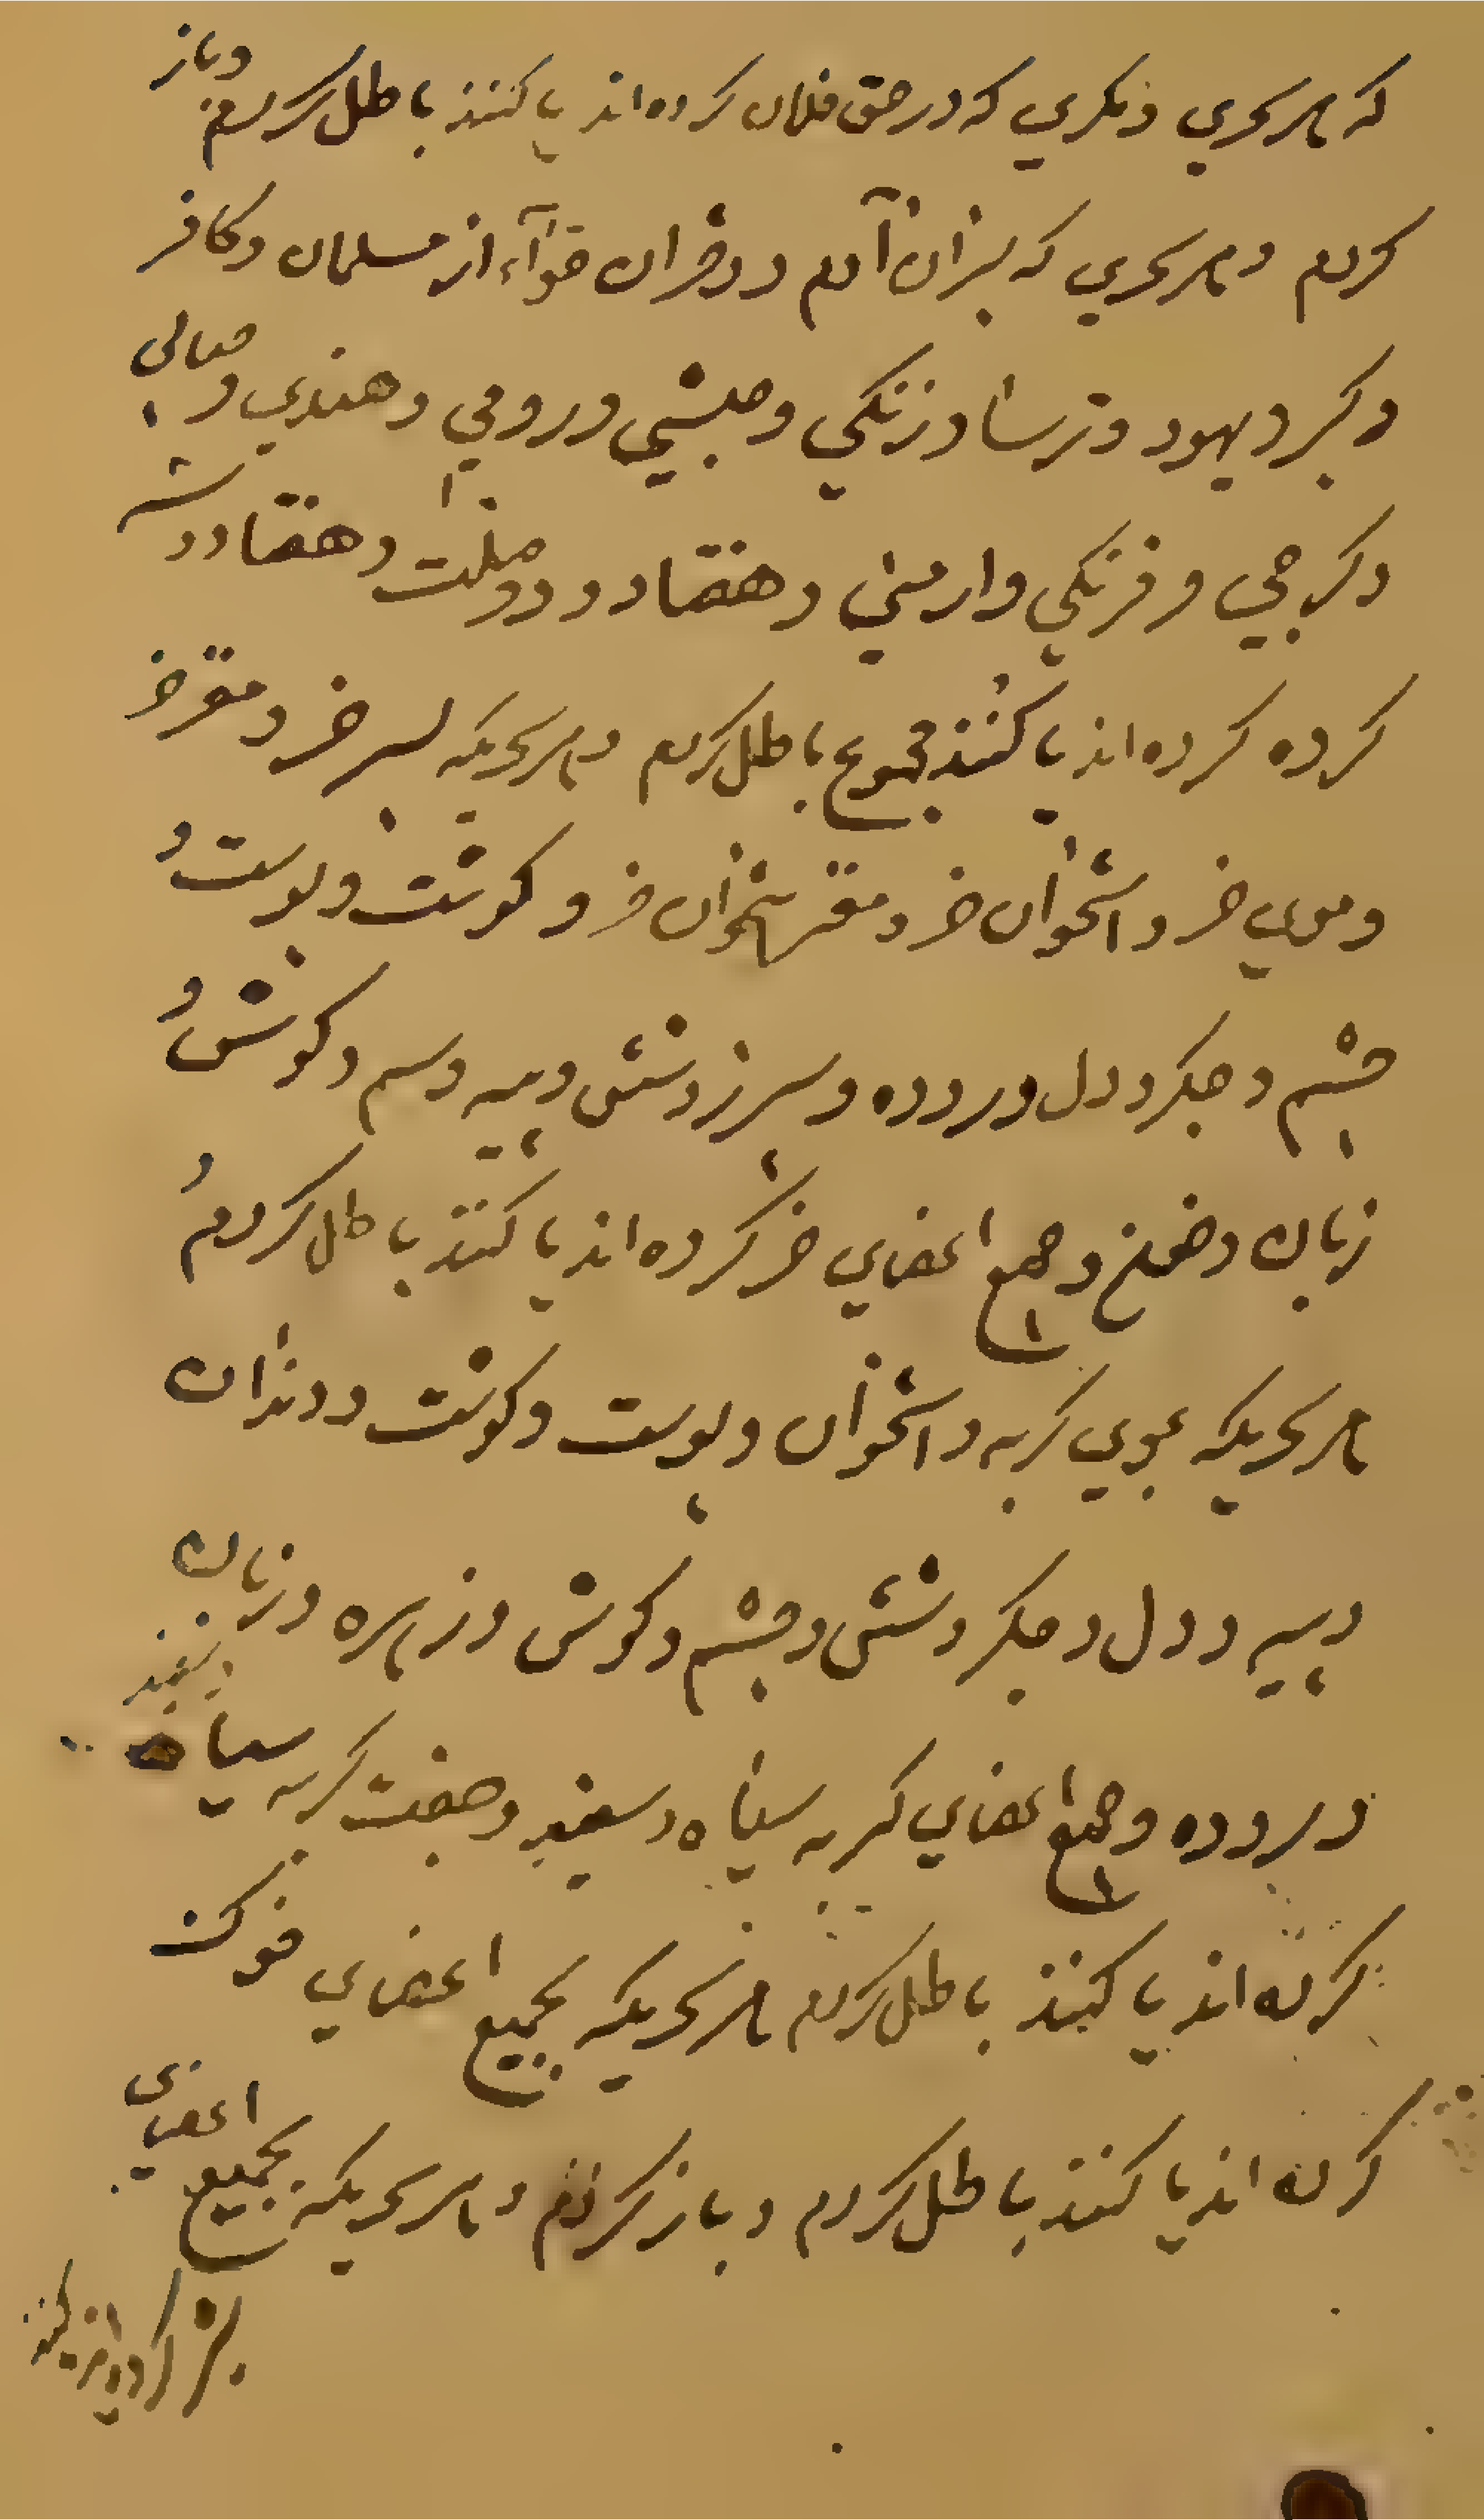 که هر سحري و مکري که در حق فلان کرده اند يا کنند باطل کردم و باز
کردم و هر سحري که پسران آدم و دختران حوّا از مسلمان و کافر
و کبر و يهود و ترسا و زنکي و حبشي و رومي و هندي و
و کرجي و فرنکي و ارمني و هفتاد و دو ملت و هفتاد دو
کرده کرده اند يا کنند مجموع باطل کردم و هر سحريکه بسر خر و مغز خر
و موي خر و استخوان خر و مغز استخوان خر و کوشت و پوست و
چشم و جکر و دل و روده و سپرز و شش و پيه و سم و کوش و
زبان و و جميع اعضاي خر کرده اند يا کنند باطل کردم و
هر سحريکه بموي کربه و استخوان و پوست و کوشت و دندان
و پيه و دل و جکر و شش و چشم و کوش و زهره و زبان
و روده و جميع اعضاي کربه سياه و سفيد و جفت کربه سياه و سفيد
کرده اند يا کنند باطل کردم هر سحريکه بجميع اعضاي خوک
کرده اند يا کنند باطل کردم و باز کردم و هر سحريکه بجميع اعضاي
بز کرده اند يا کنند